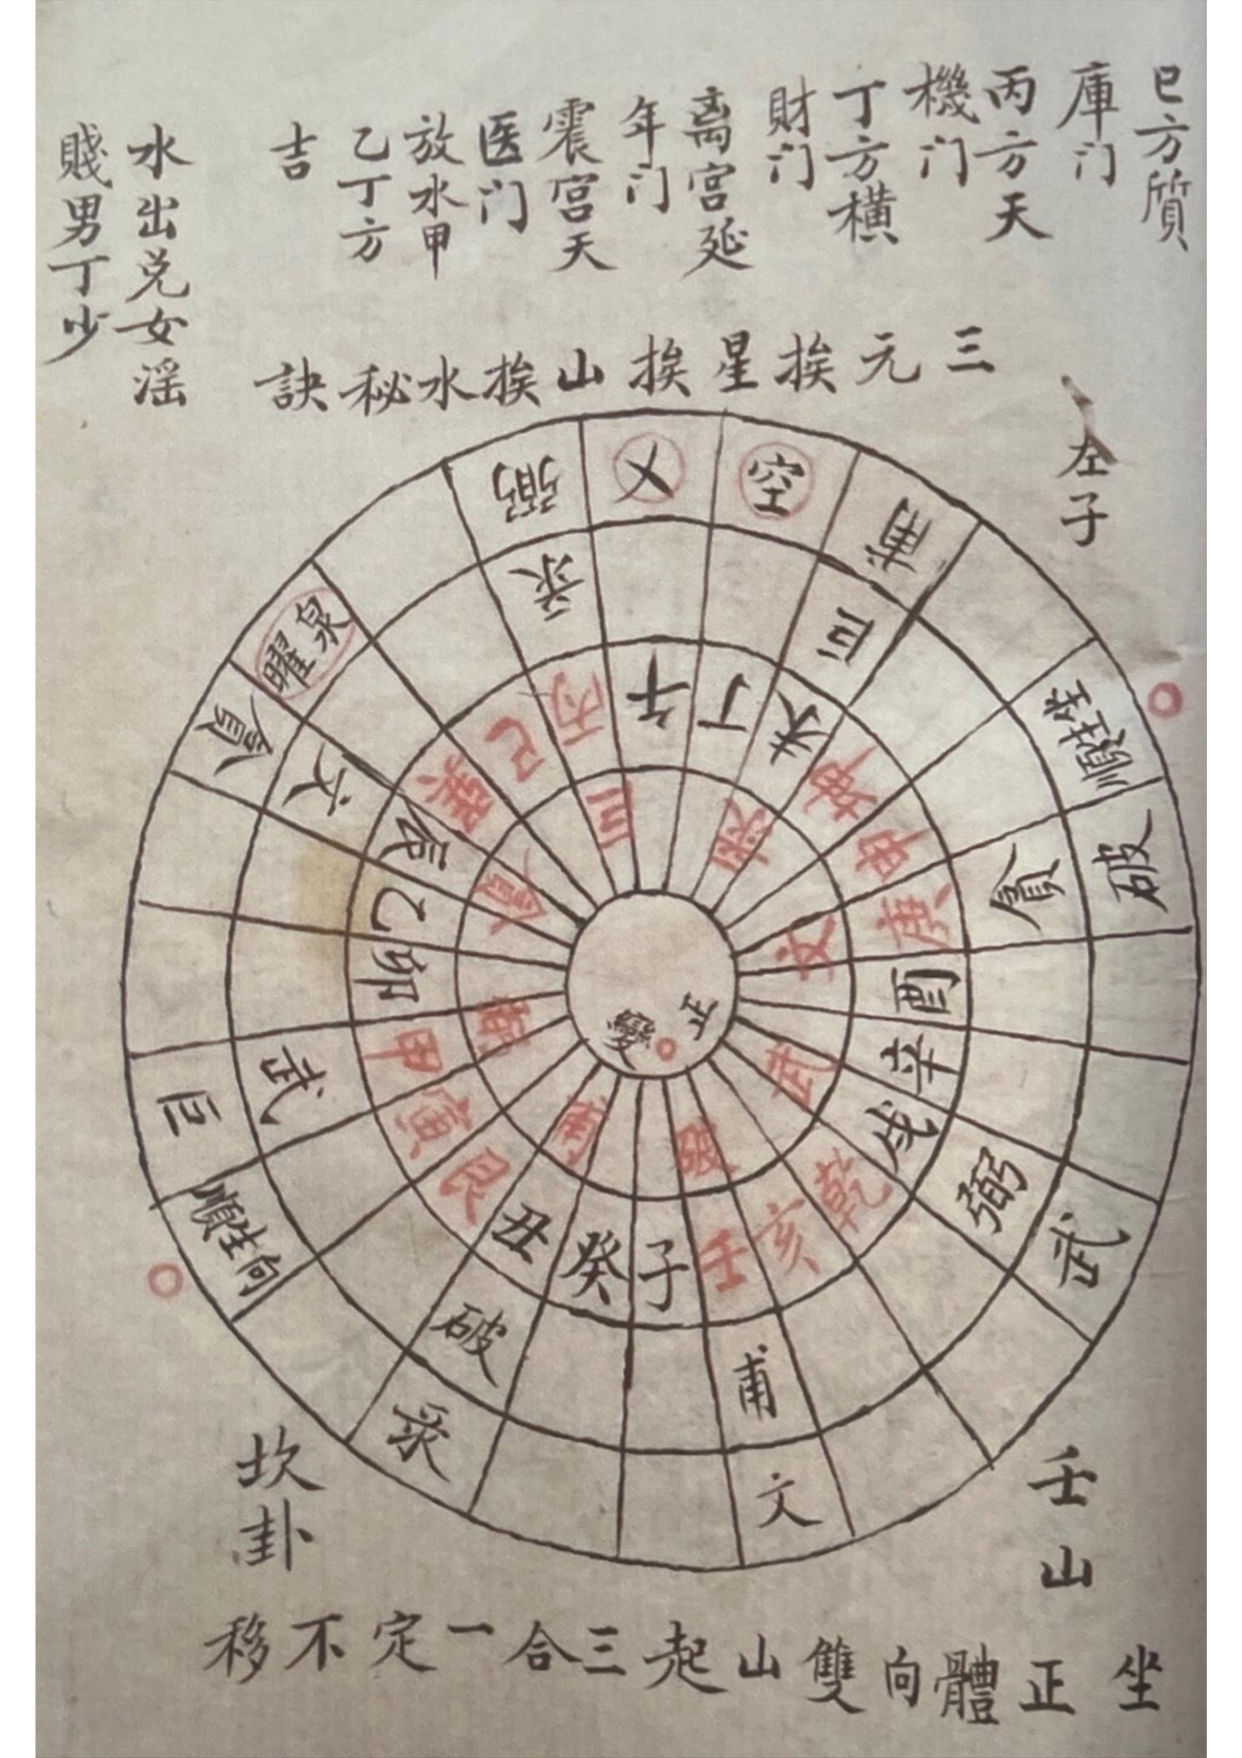 巳方質
庫门
丙方天
機门
丁方横
財门
离宫延
年门
震宫天
医门
放水甲
乙丁方
吉
水出兑女滛
賤男丁少
三元挨星挨山挨水秘訣
左子
空
乂
弼
甫
巨
泉
曜
貪
文
順挂坐
破
貪
武
弼
文
甫
破
順生向
巨
武
午
丁
未
坤
申
庚
酉
辛
戌
乾
亥
壬
子
癸
丑
艮
寅
甲
卯
乙
辰
巽
巳
丙
巨
貪
甫
破
武
文
正
變
坎卦
壬山
坐正體向雙山起三合一定不移